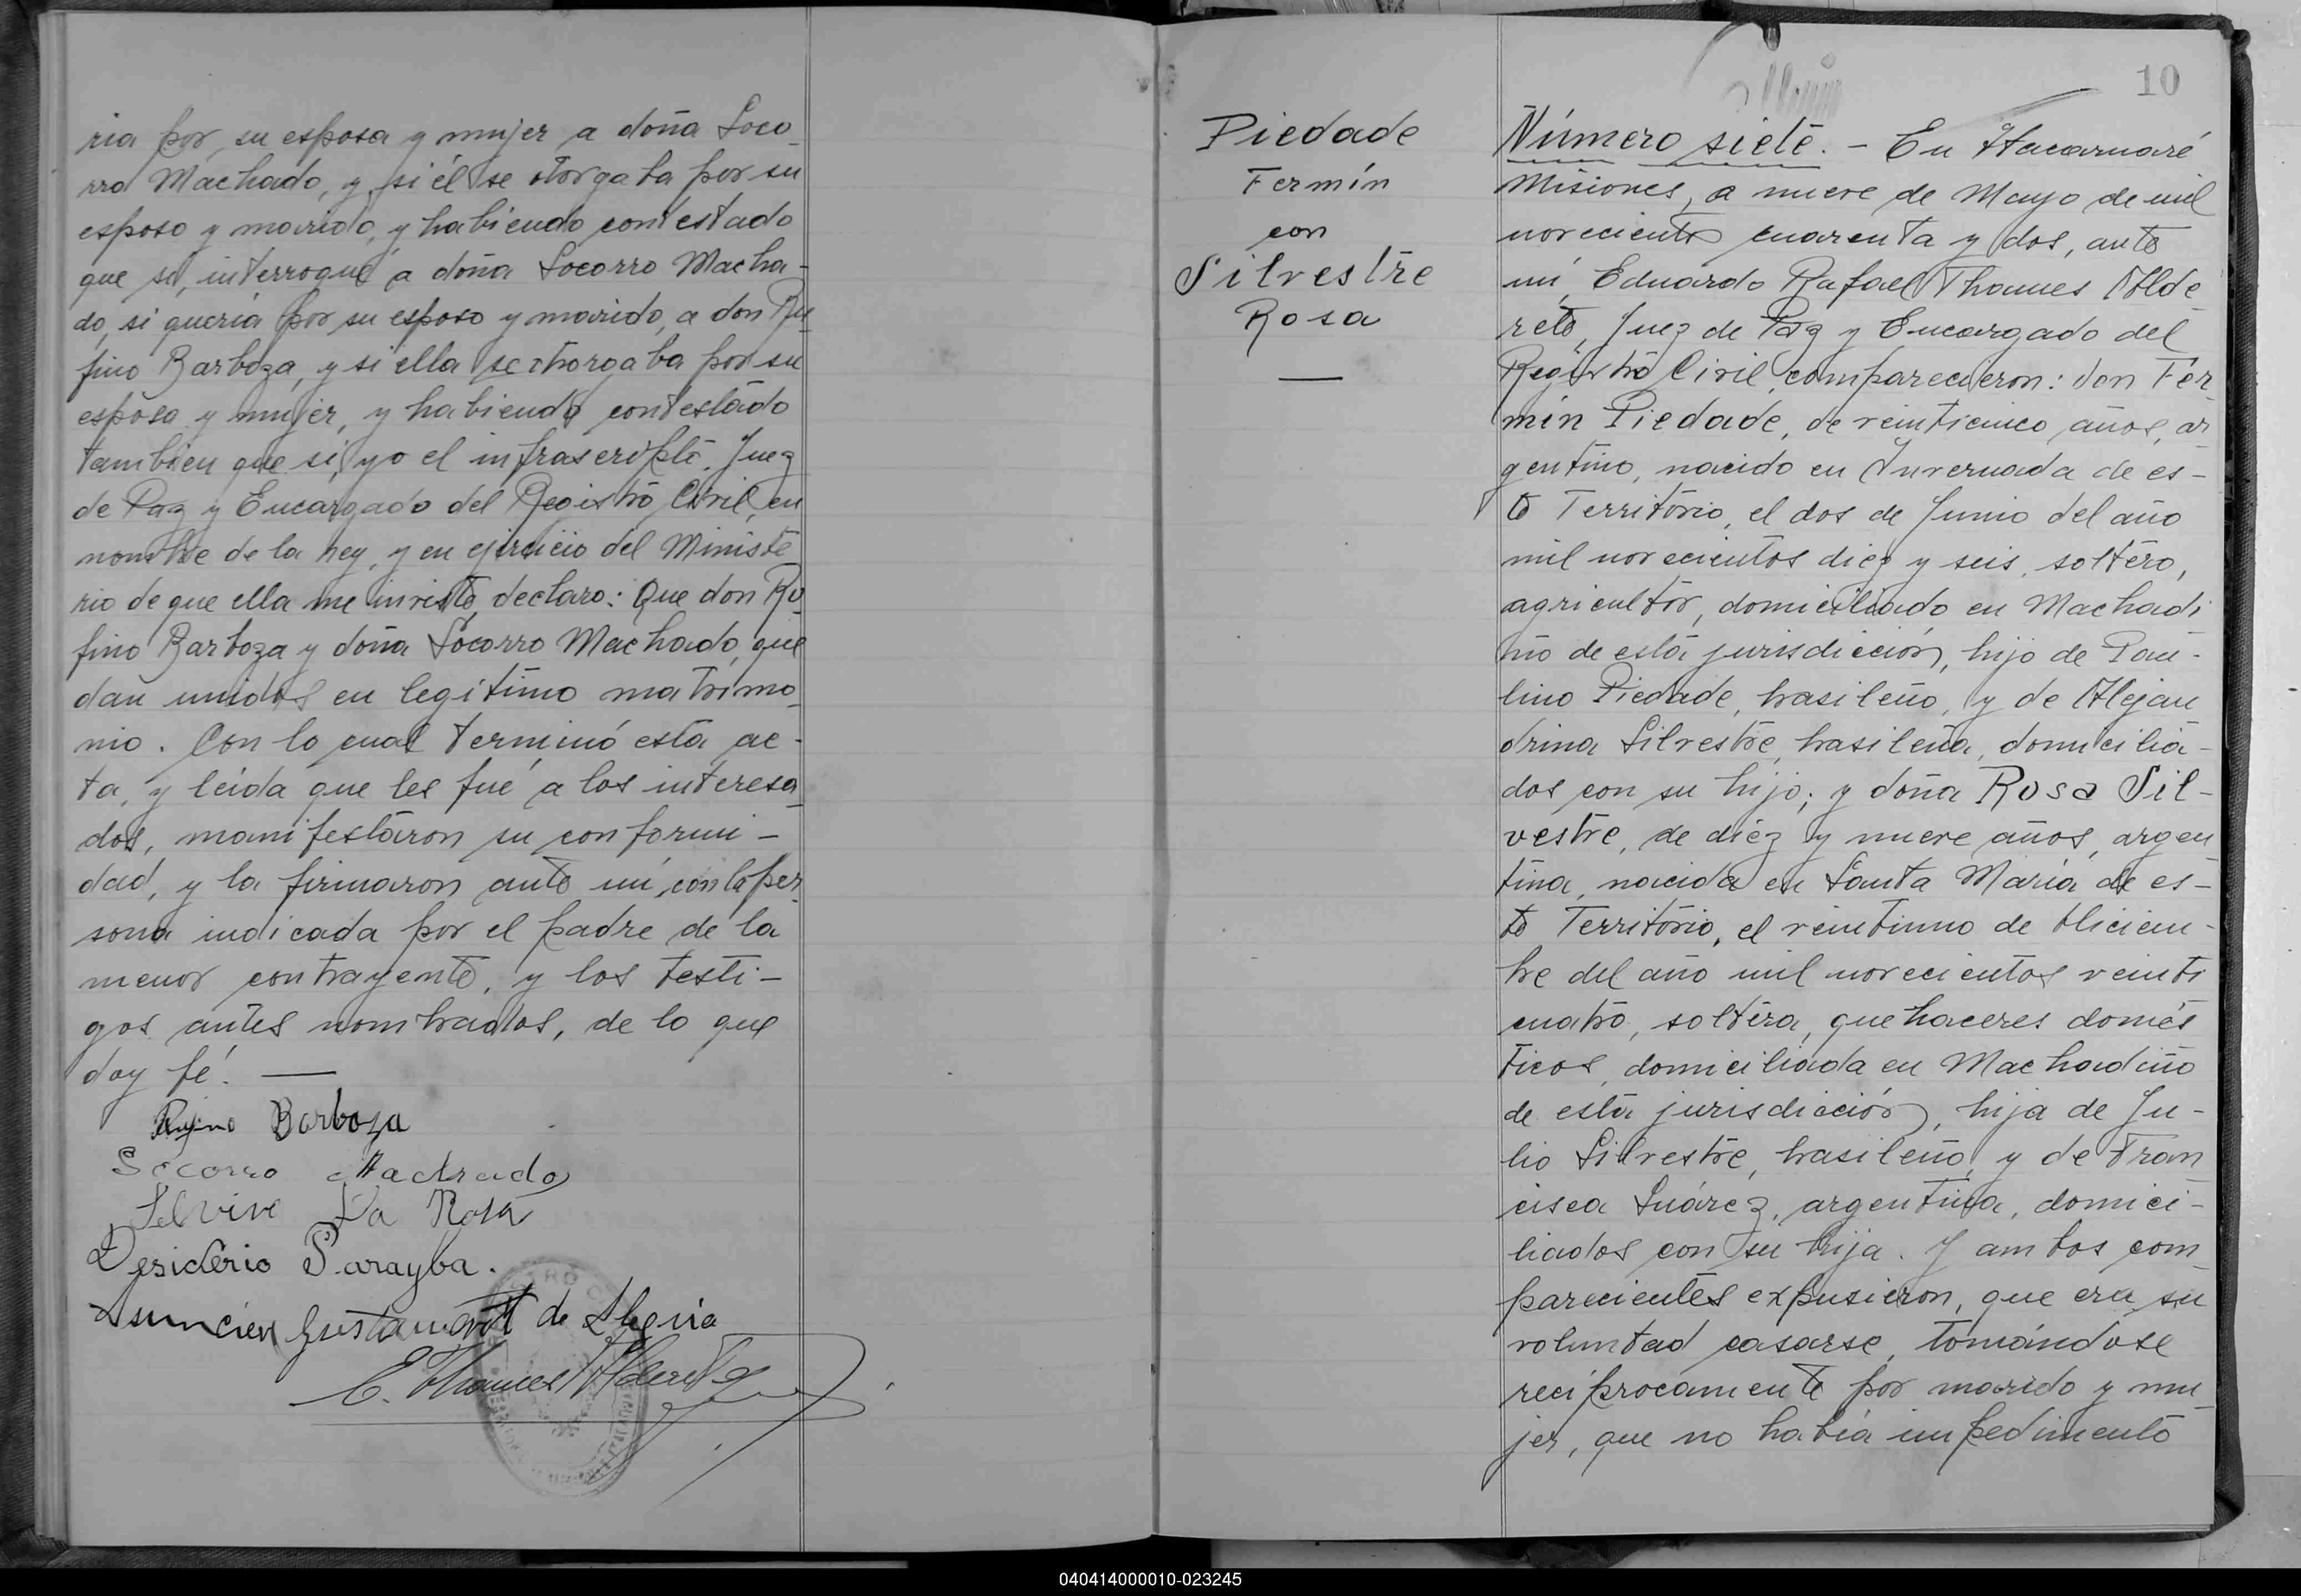 ria por su esposa y mujer a doña Soco_
rro Machado, y si él se otorgaba por su
esposo y marido, y habiendo contestado
que sí, interrogué a doña Socorro Macha-
do, si quería por su esposo y marido, a don Ru_
fino Barboza, y si ella se otorgaba por su
esposa y mujer, y habiendo contestado
tambien que si, yo el infrascripto, Juez
de Paz y Encargado del Registro Civil, en
nombre de la ley, y en ejercicio del Ministe_
rio de que ella me inviste, declaro: Que don Ru_
fino Barboza y doña Socorro Machado, que
dan unidos en legítimo matrimo_
nio. Con lo cual terminó esta ac-
ta, y leída que les fué a los interesa_
dos, manifestaron su conformi-
dad, y la firmaron ante mí, con la per_
sona indicada por el padre de la
menor contrayente, y los testi-
gos antes nombrados, de lo que
doy fé. —
Rufino Barboza
Socorro Machado
Da Rosa
Desiderio Parayba.
Asuncion de
E. Thames Alderete
10
Piedade
Fermín
con
Silvestre
Rosa
Número siete. - En Itacaruaré
Misiones, a nueve de Mayo de mil
novecientos cuarenta y dos, ante
mí, Eduardo Rafael Thames Alde
rete, Juez de Paz y Encargado del
Registro Civil, comparecieron: don Fer
mín Piedade, de veinticinco años, ar
gentino, nacido en Invernada de es-
te Territorio, el dos de Junio del año
mil novecientos diez y seis, soltero,
agricultor, domiciliado en Machadi
ño de esta jurisdicción, hijo de Pau-
lino Piedade, brasileño, y de Alejan
drina Silvestre, brasileña, domicilia-
dos con su hijo; y doña Rosa Sil-
vestre, de diéz y nueve años, argen
tina, nacida en Santa María de es-
te Territorio, el veintiuno de Diciem-
bre del año mil novecientos veinti
cuatro, soltera, quehaceres domés
ticos, domiciliada en Machadiño
de esta jurisdicción, hija de Ju-
lio Silvestre, brasileño, y de Fran
cisca Suárez, argentina, domici-
liados con su hija. Y ambos com_
parecientes expusieron, que era su
voluntad casarse, tomándose
recíprocamente por marido y mu_
jer, que no había impedimento
040414000010-023245